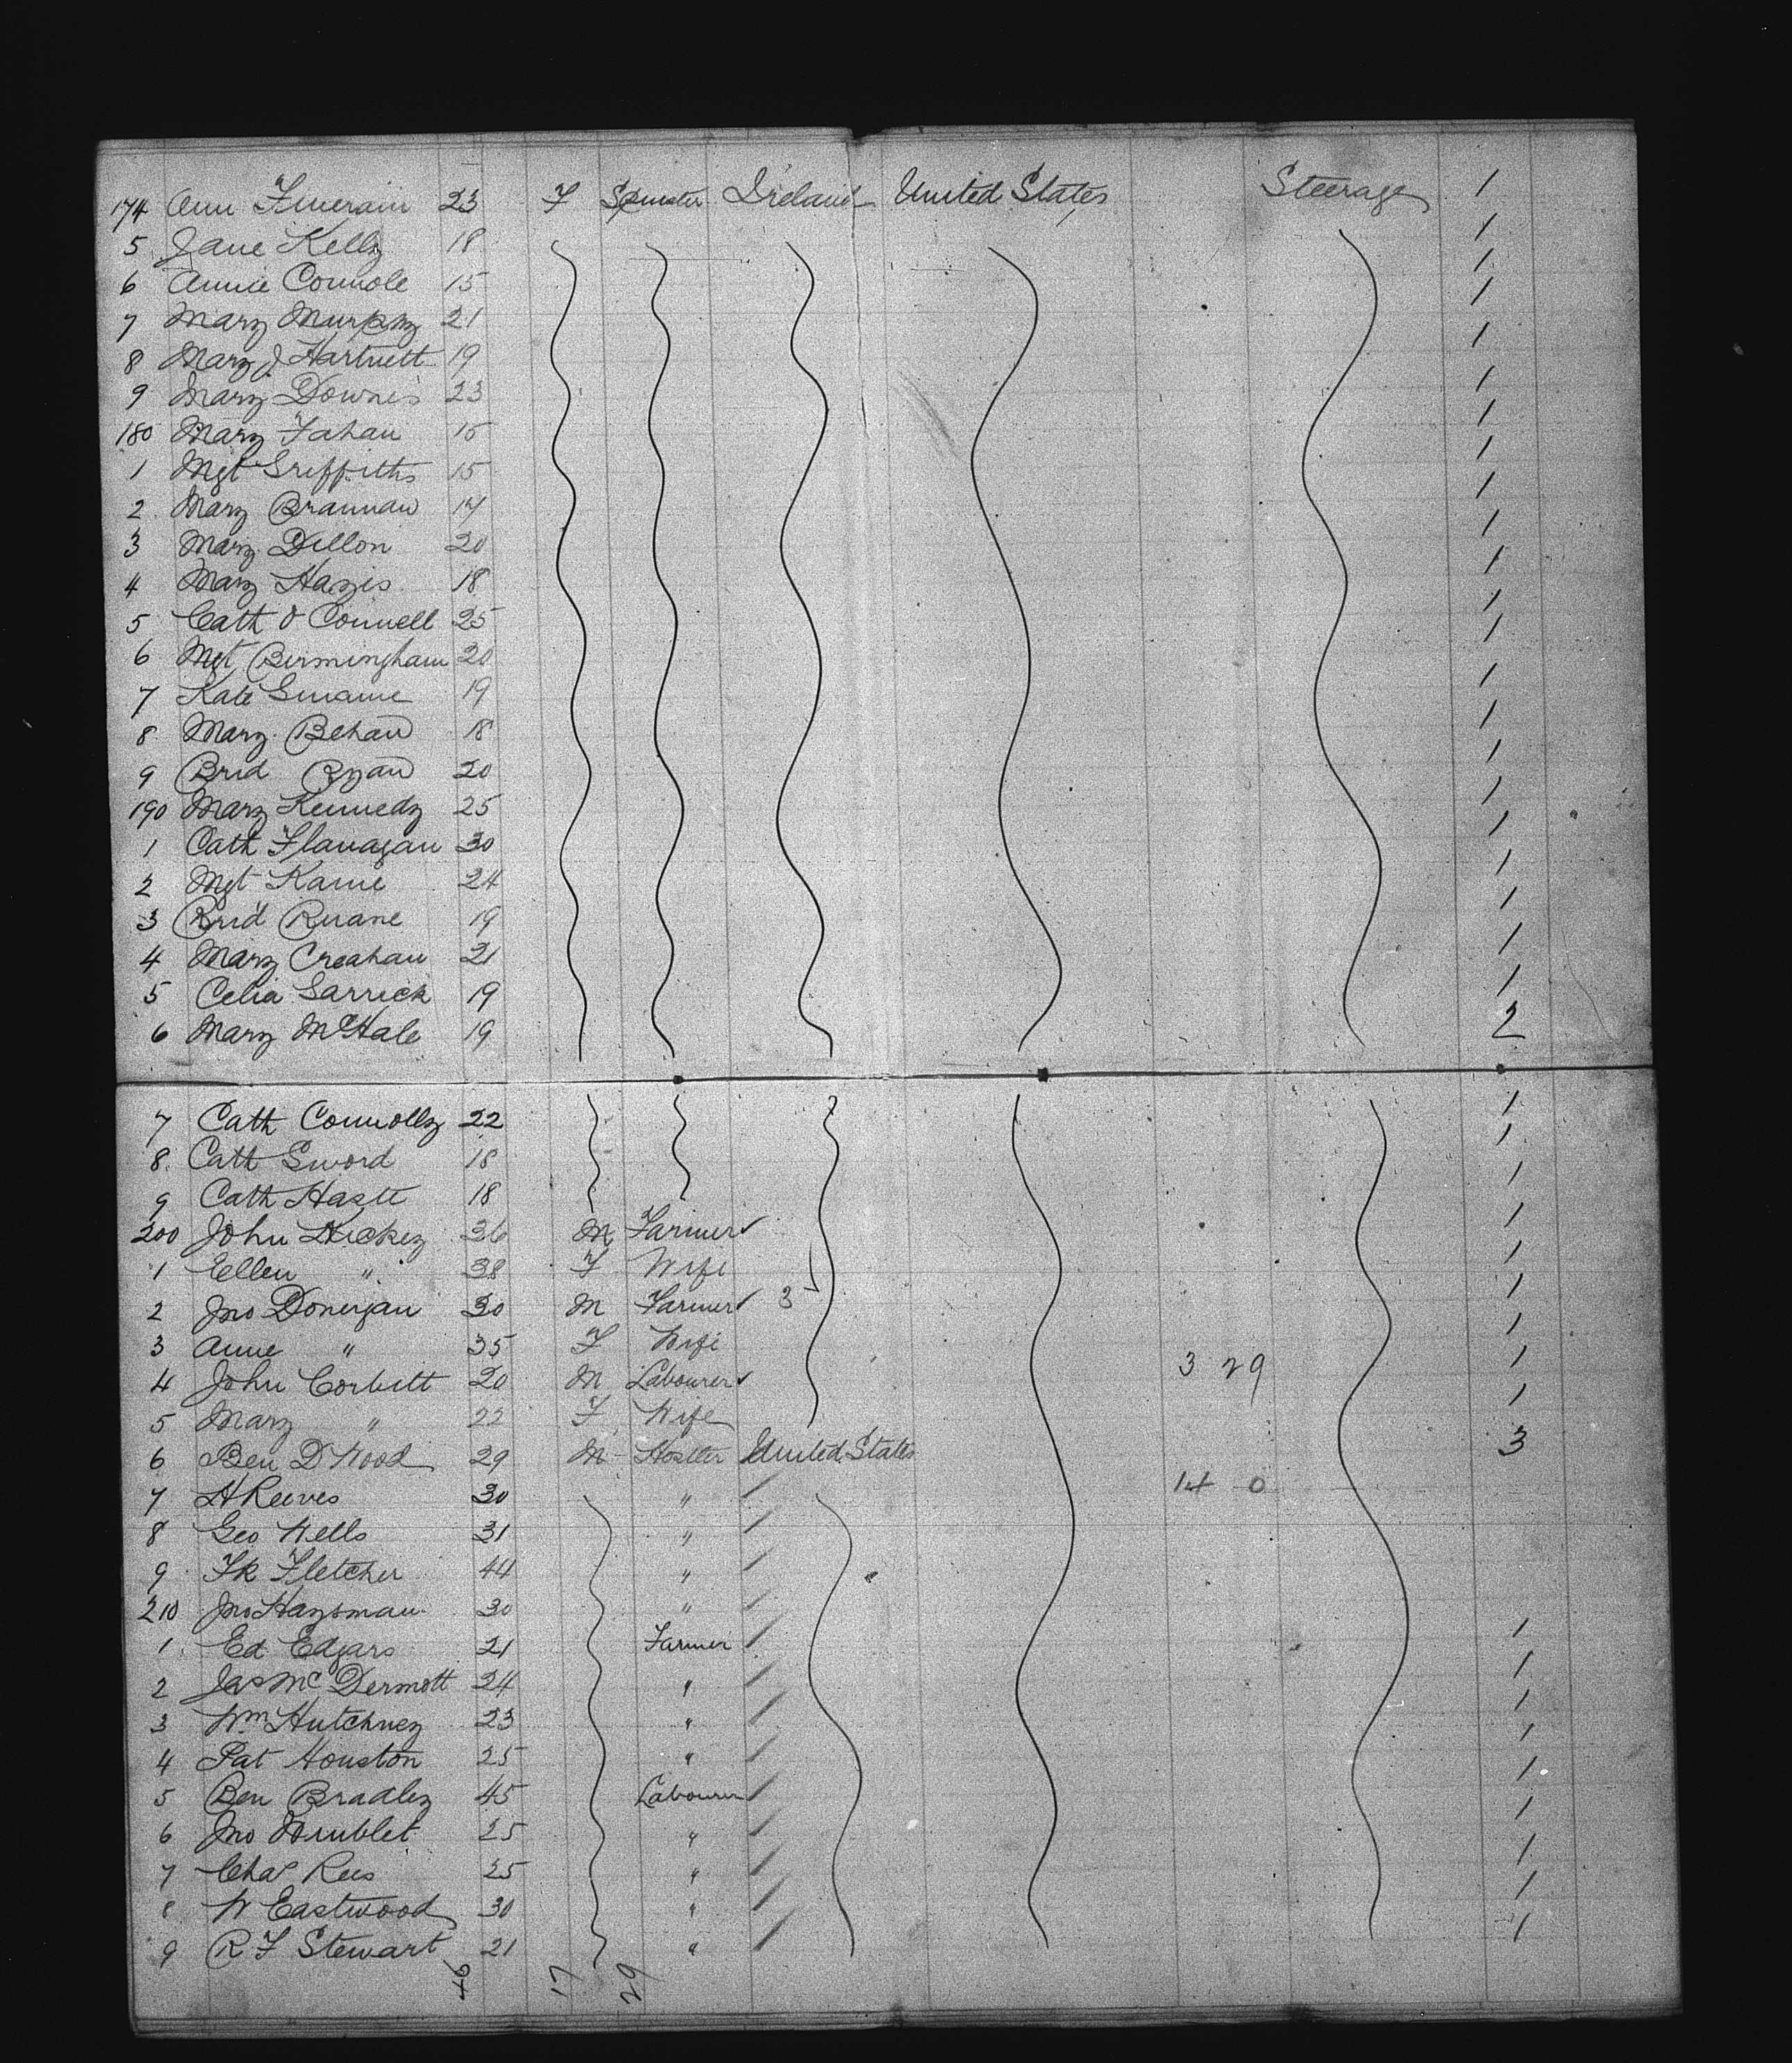 174 Ann Finerain 23 F Spinster Ireland United States Steerage 1
5 Jane Kelly 18 1
6 Annie Connole 15 1
7 Mary Murphy 21 1
8 Mary J Hartnett 19 1
9 Mary Downes 23 1
180 Mary Fahan 15 1
1 Mgt Griffiths 15 1
2 Mary Brannan 17 1
3 Mary Dillon 20 1
4 Mary Hayes 18 1
5 Cath O Connell 25 1
6 Mgt Birmingham 20 1
7 Kate 19 1
8 Mary Behan 18 1
9 Brid Ryan 20 1
190 Mary Kennedy 25 1
1 Cath Flanagan 30 1
2 Mgt Kane 24 1
3 Brid Ruane 19 1
4 Mary Creahan 21 1
5 Celia Garrick 19 1
6 Mary McHale 19 2
7 Cath Connolly 22 1
8 Cath Sword 18 1
9 Cath 18 1
200 John Hickey 36 M Farmer 1
1 Ellen " 38 F Wife 1
2 Jno Donegan 30 M Farmer 3 1
3 Anne " 35 F Wife 1
4 John Corbett 20 M Labourer 3 29 1
5 Mary " 22 F Wife 1
6 Ben D Wood 29 M Hostler United States 3
7 H Reeves 30 " 14 0
8 Geo Wells 31 "
9 Fk Fletcher 44 "
210 Jno Haysman 30 "
1 Ed Edgars 21 Farmer 1
2 Jas McDermott 24 " 1
3 Wm Hutchney 23 " 1
4 Pat Houston 25 " 1
5 Ben Bradley 45 Labourer 1
6 Jno 25 " 1
7 Chas Rees 25 " 1
8 W Eastwood 30 " 1
9 R F Stewart 21 " 1
46 17 29